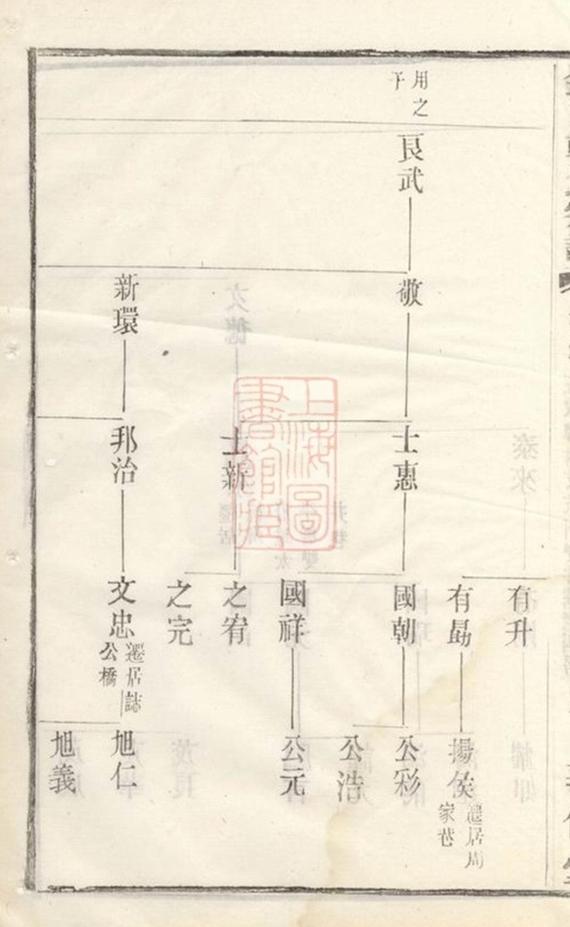 用之子
良武
敬
新環
士惠
士新
邦治
有升
有勗
國朝
國祥
之宥
之完
文忠
遷居誌公橋
揚侯
遷居周家巷
公彩
公浩
公元
旭仁
旭義
上海圖書館藏